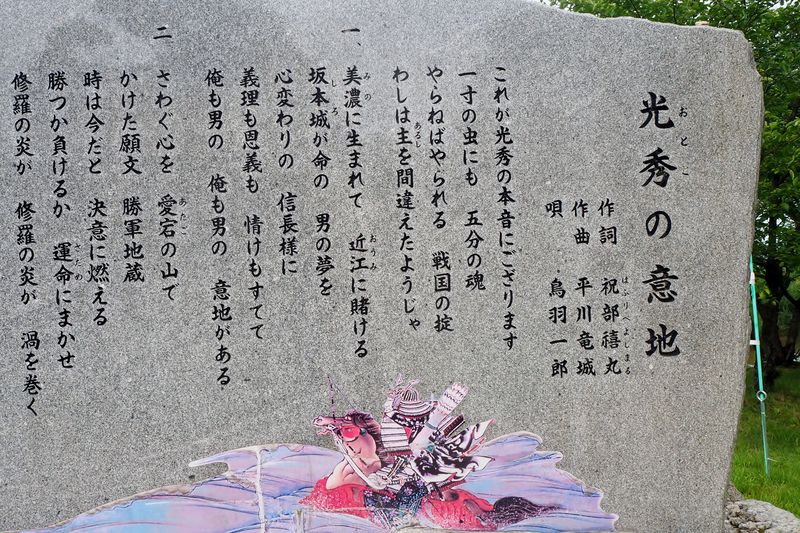 光秀の意地
おとこ
作詞 祝部禧丸
はふりべよしまる
作曲 平川竜城
唄 鳥羽一郎
これが光秀の本音にござります
一寸の虫にも 五分の魂
やらねばやられる 戦国の掟
わしは主を間違えたようじゃ
あるじ
一、
美濃に生まれて 近江に賭ける
みの おうみ
坂本城が命の 男の夢を
しろ
心変わりの 信長様に
義理も恩義も 情けもすてて
俺も男の 俺も男の 意地がある
二
さわぐ心を 愛宕の山で
あたご
かけた願文 勝軍地蔵
時は今だと 決意に燃える
勝つか負けるか 運命にまかせ
さだめ
修羅の炎が 修羅の炎が 渦を巻く